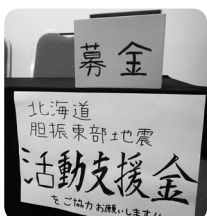 募金
北海道
胆振東部地震
活動支援金
をご協力お願いします!!